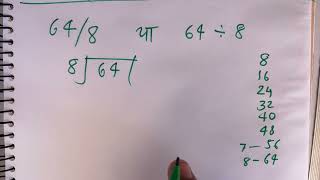 64/8 या 64 ÷ 8
8)64(
8
16
24
32
40
48
7 – 56
8 – 64